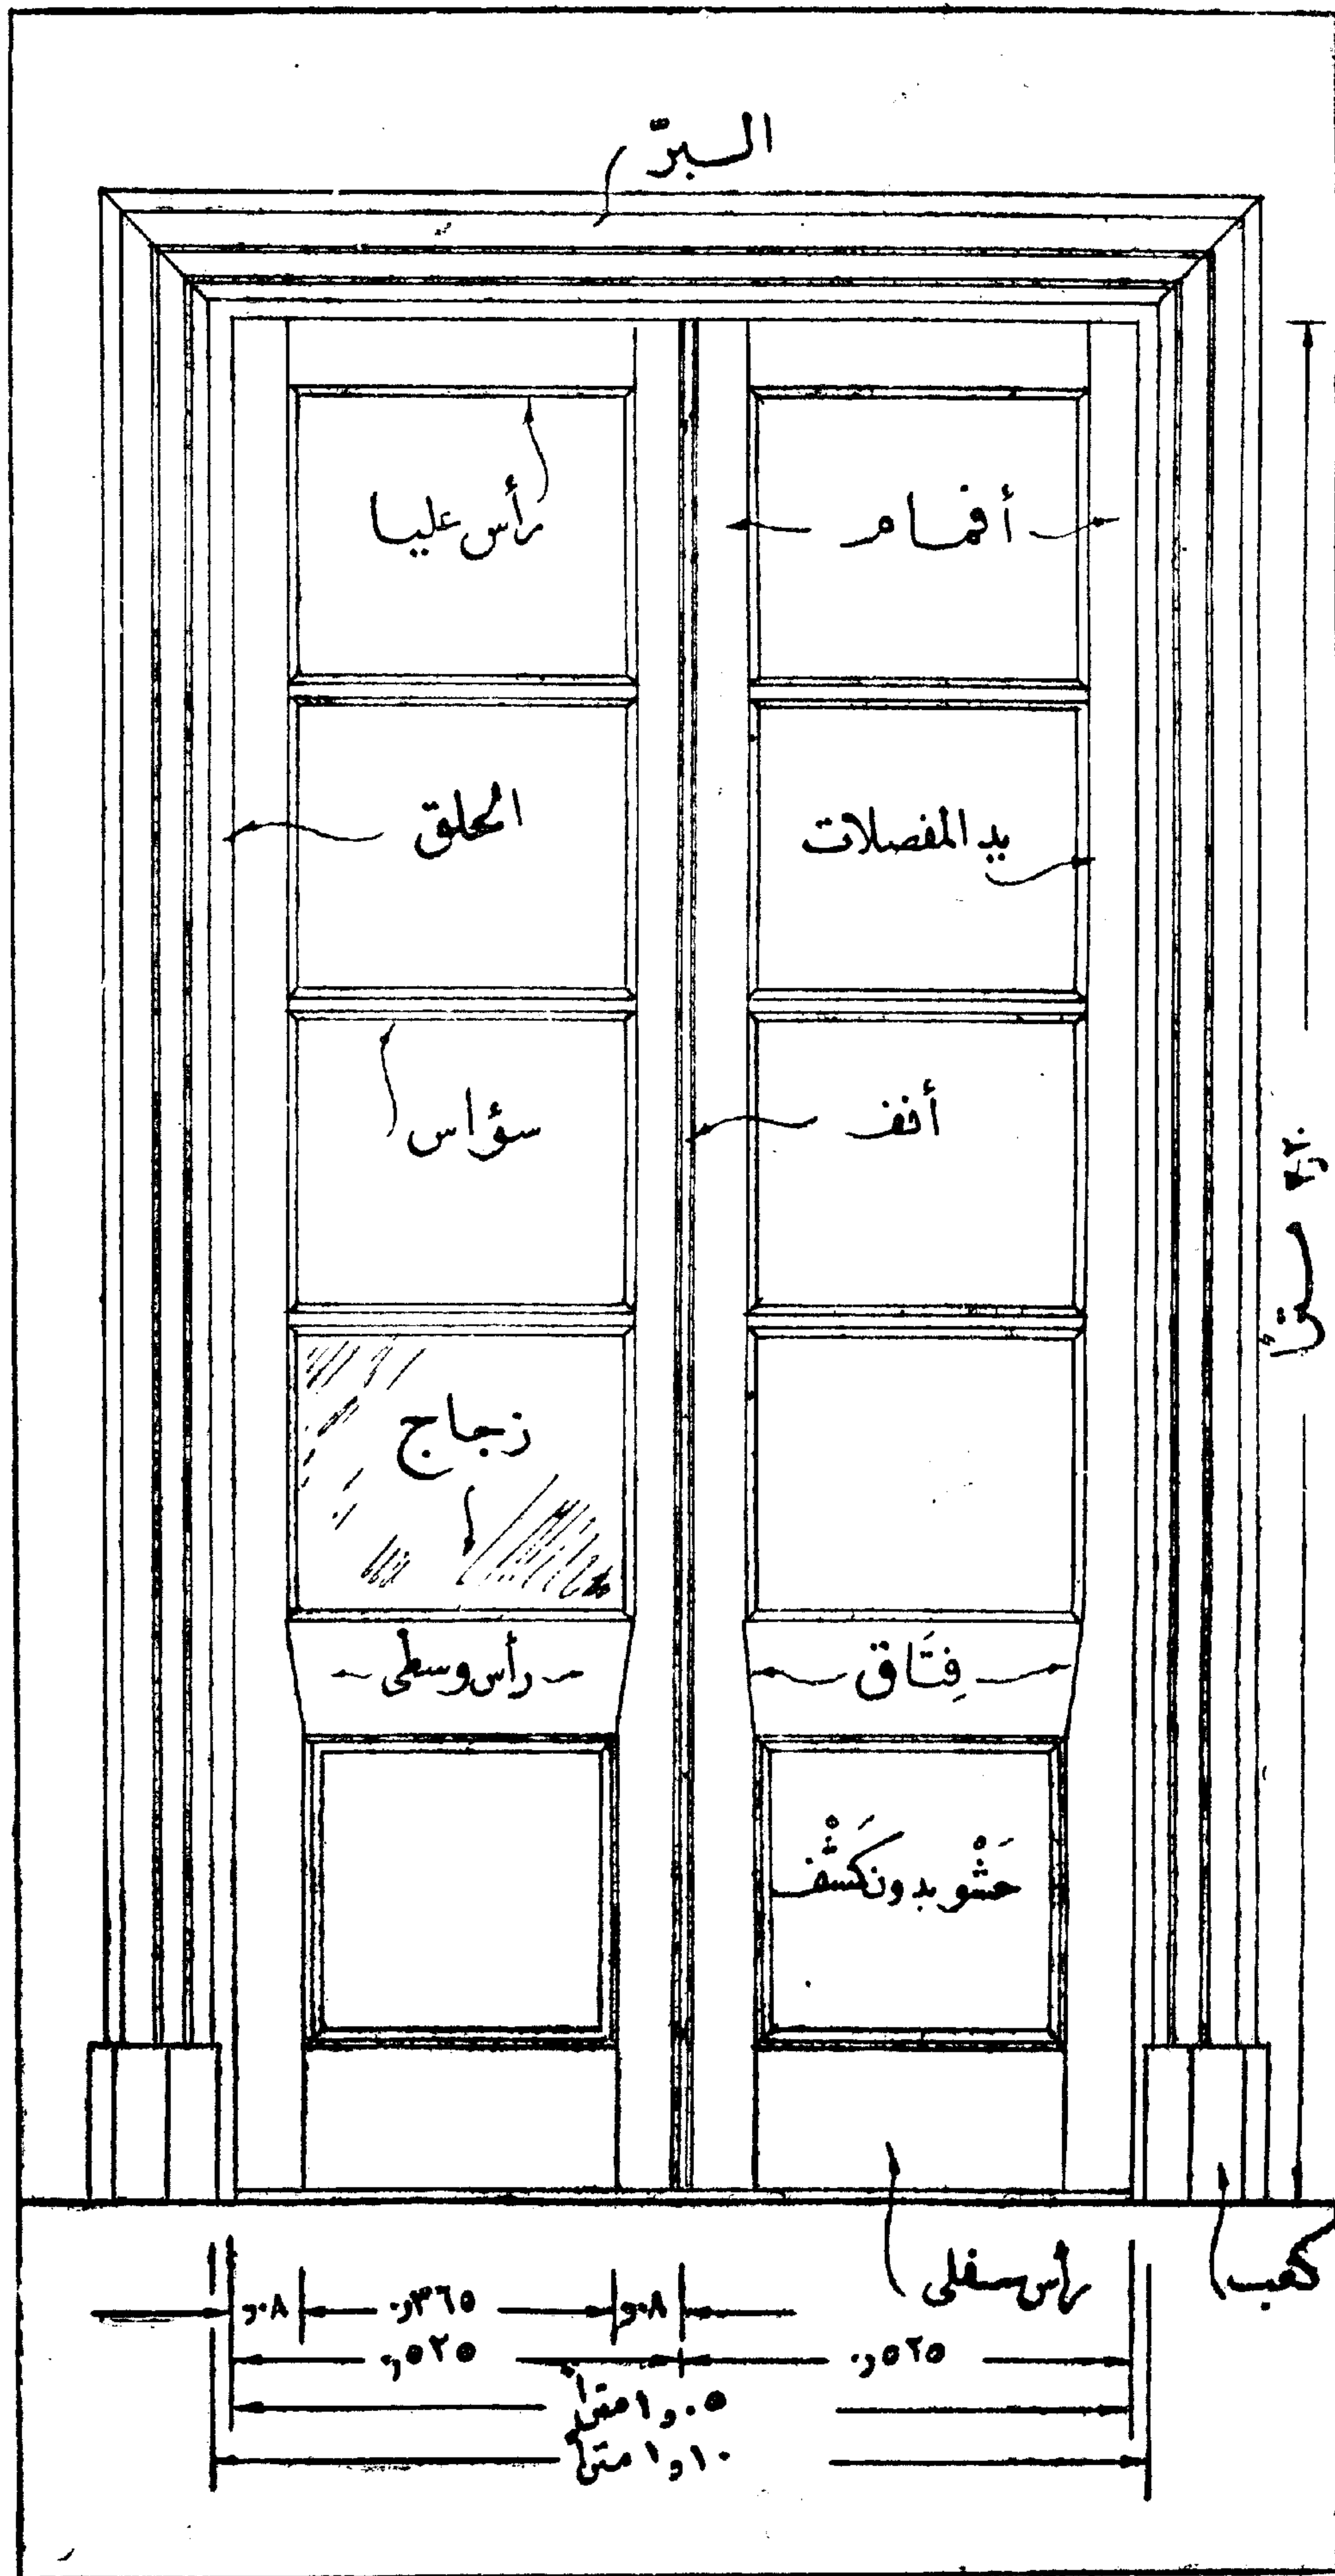 السبرّ
أقمام
رأس عليا
يد المفصلات
الحلق
أنف
سؤاس
زجاج
فِتَاق
رأس وسطى
حَشْو بدون كَشْف
كعب
رأس سفلى
٠٫٠٨
٠٫٣٦٥
٠٫٠٨
٠٫٥٢٥
٠٫٥٢٥
١٫٠٥ متراً
١٫١٠ متراً